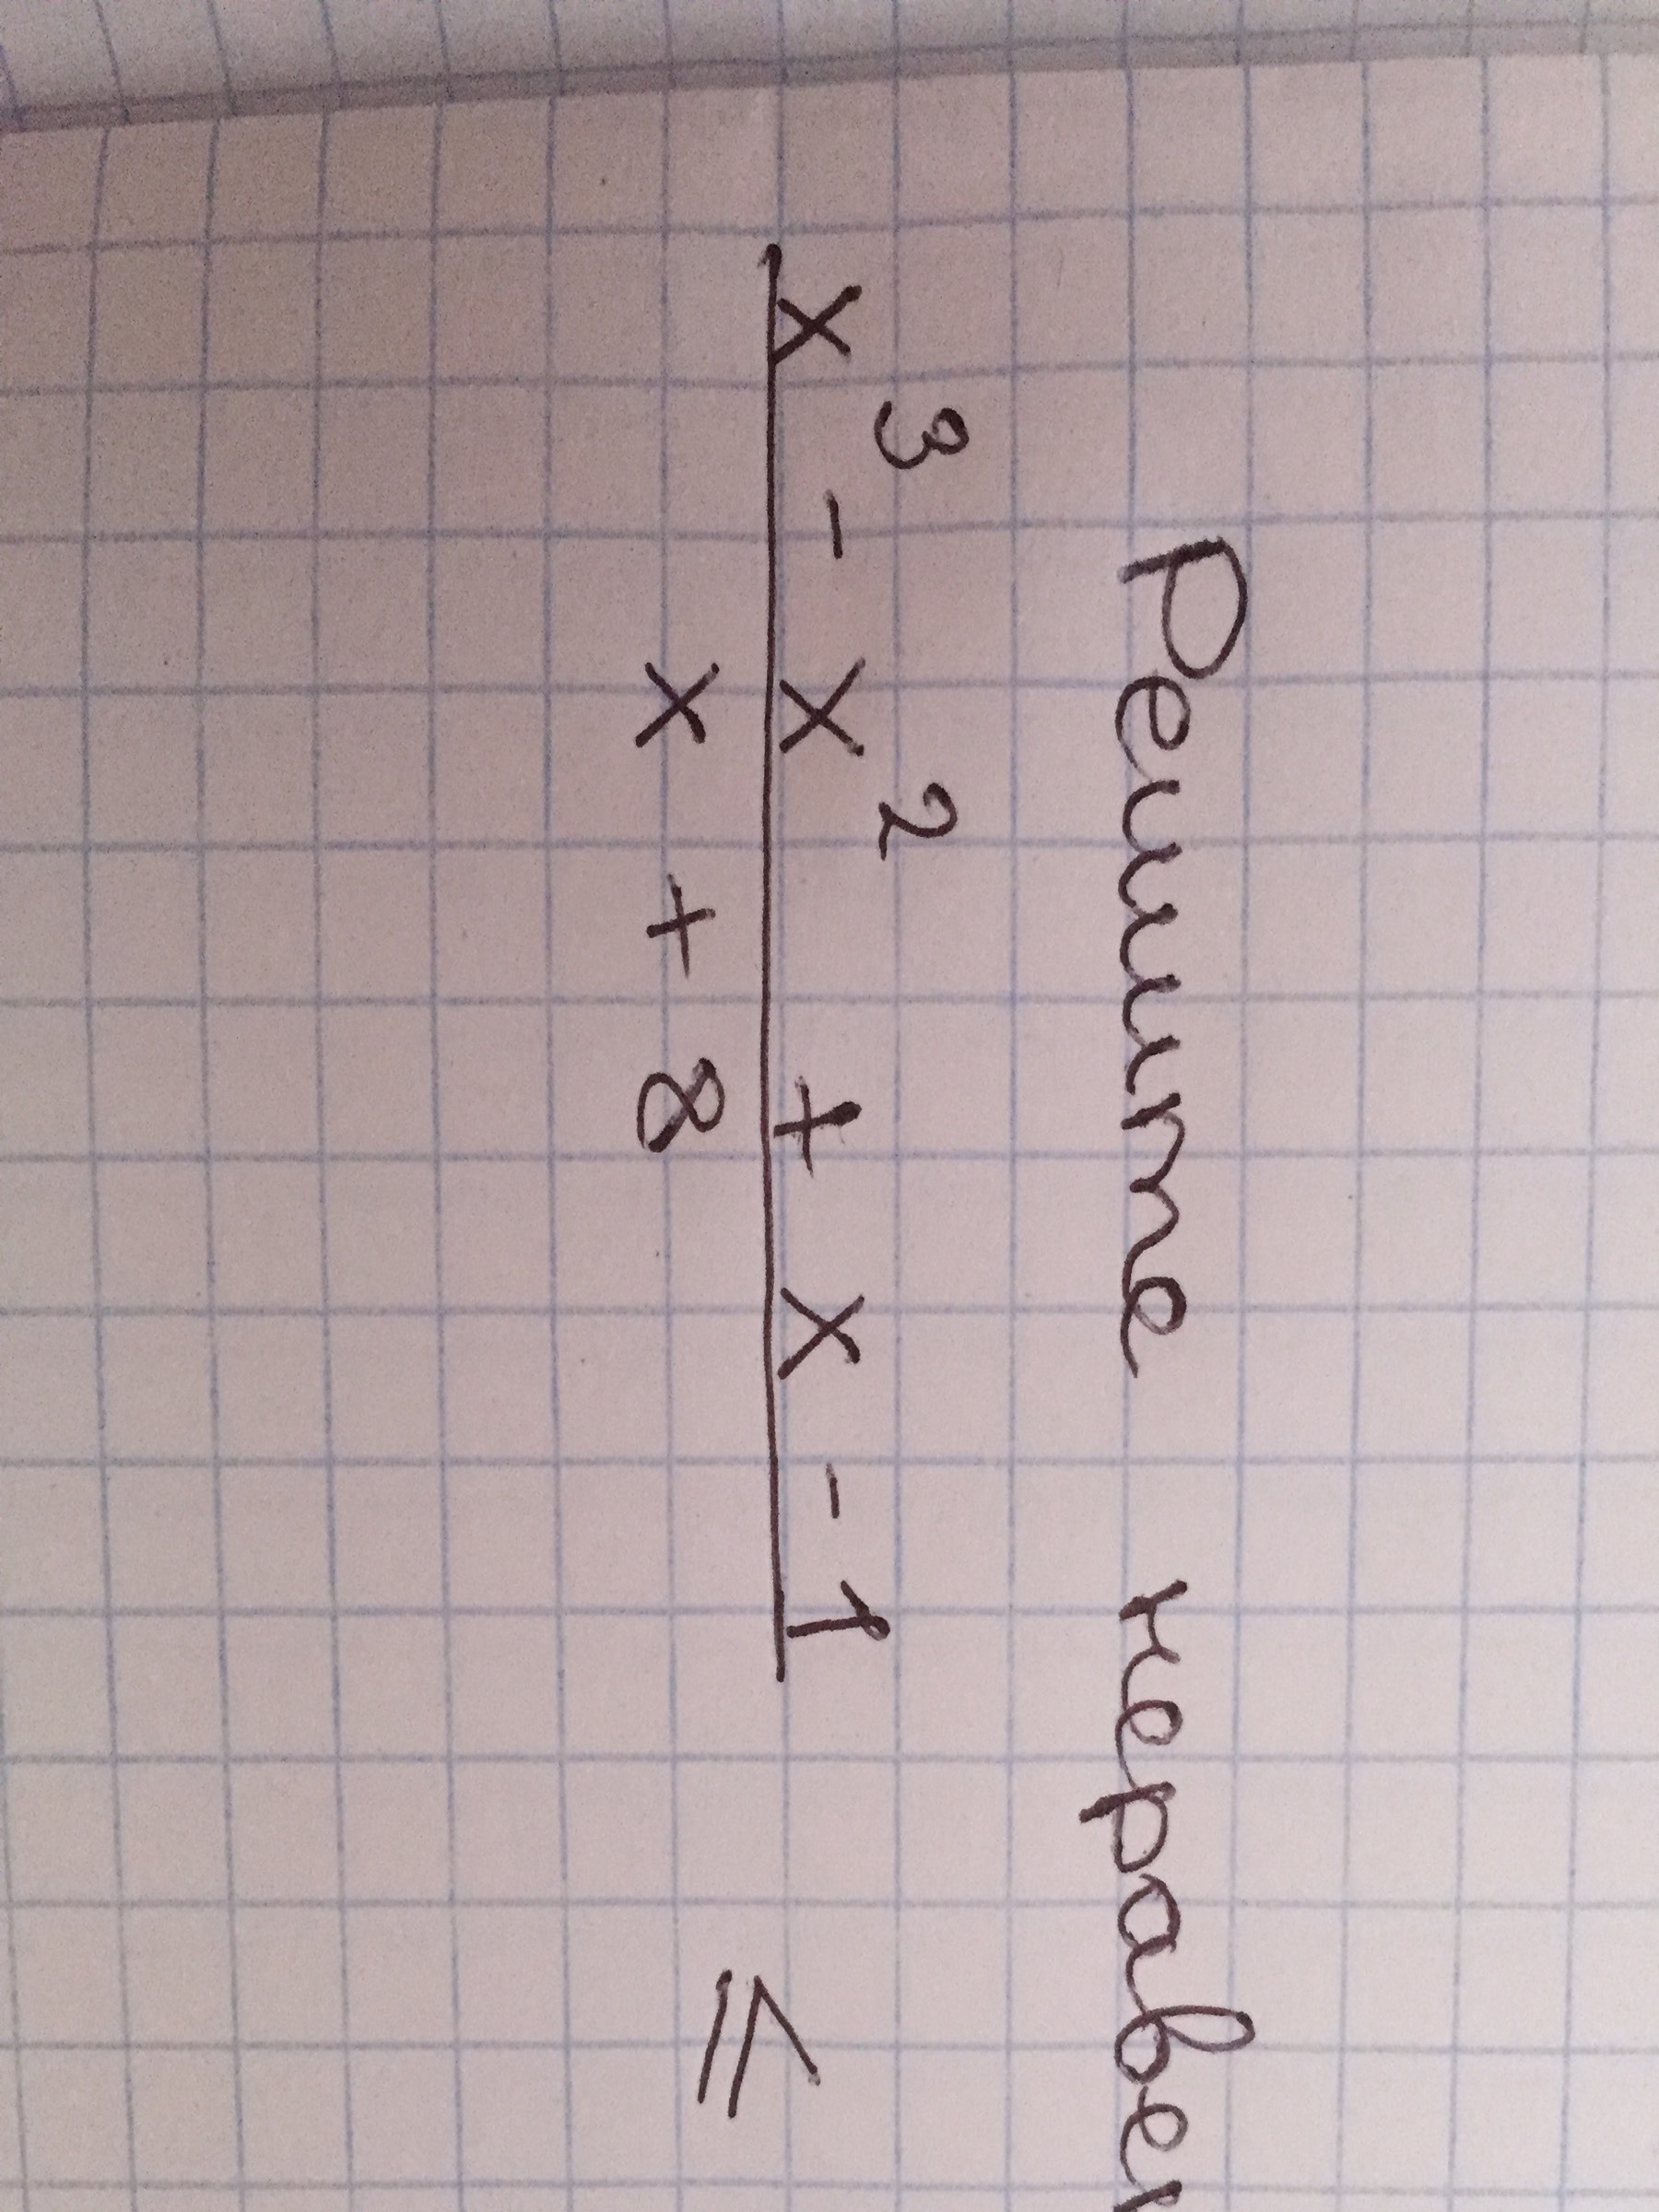 Решите неравен
x³ - x² + x - 1
x + 8
≤